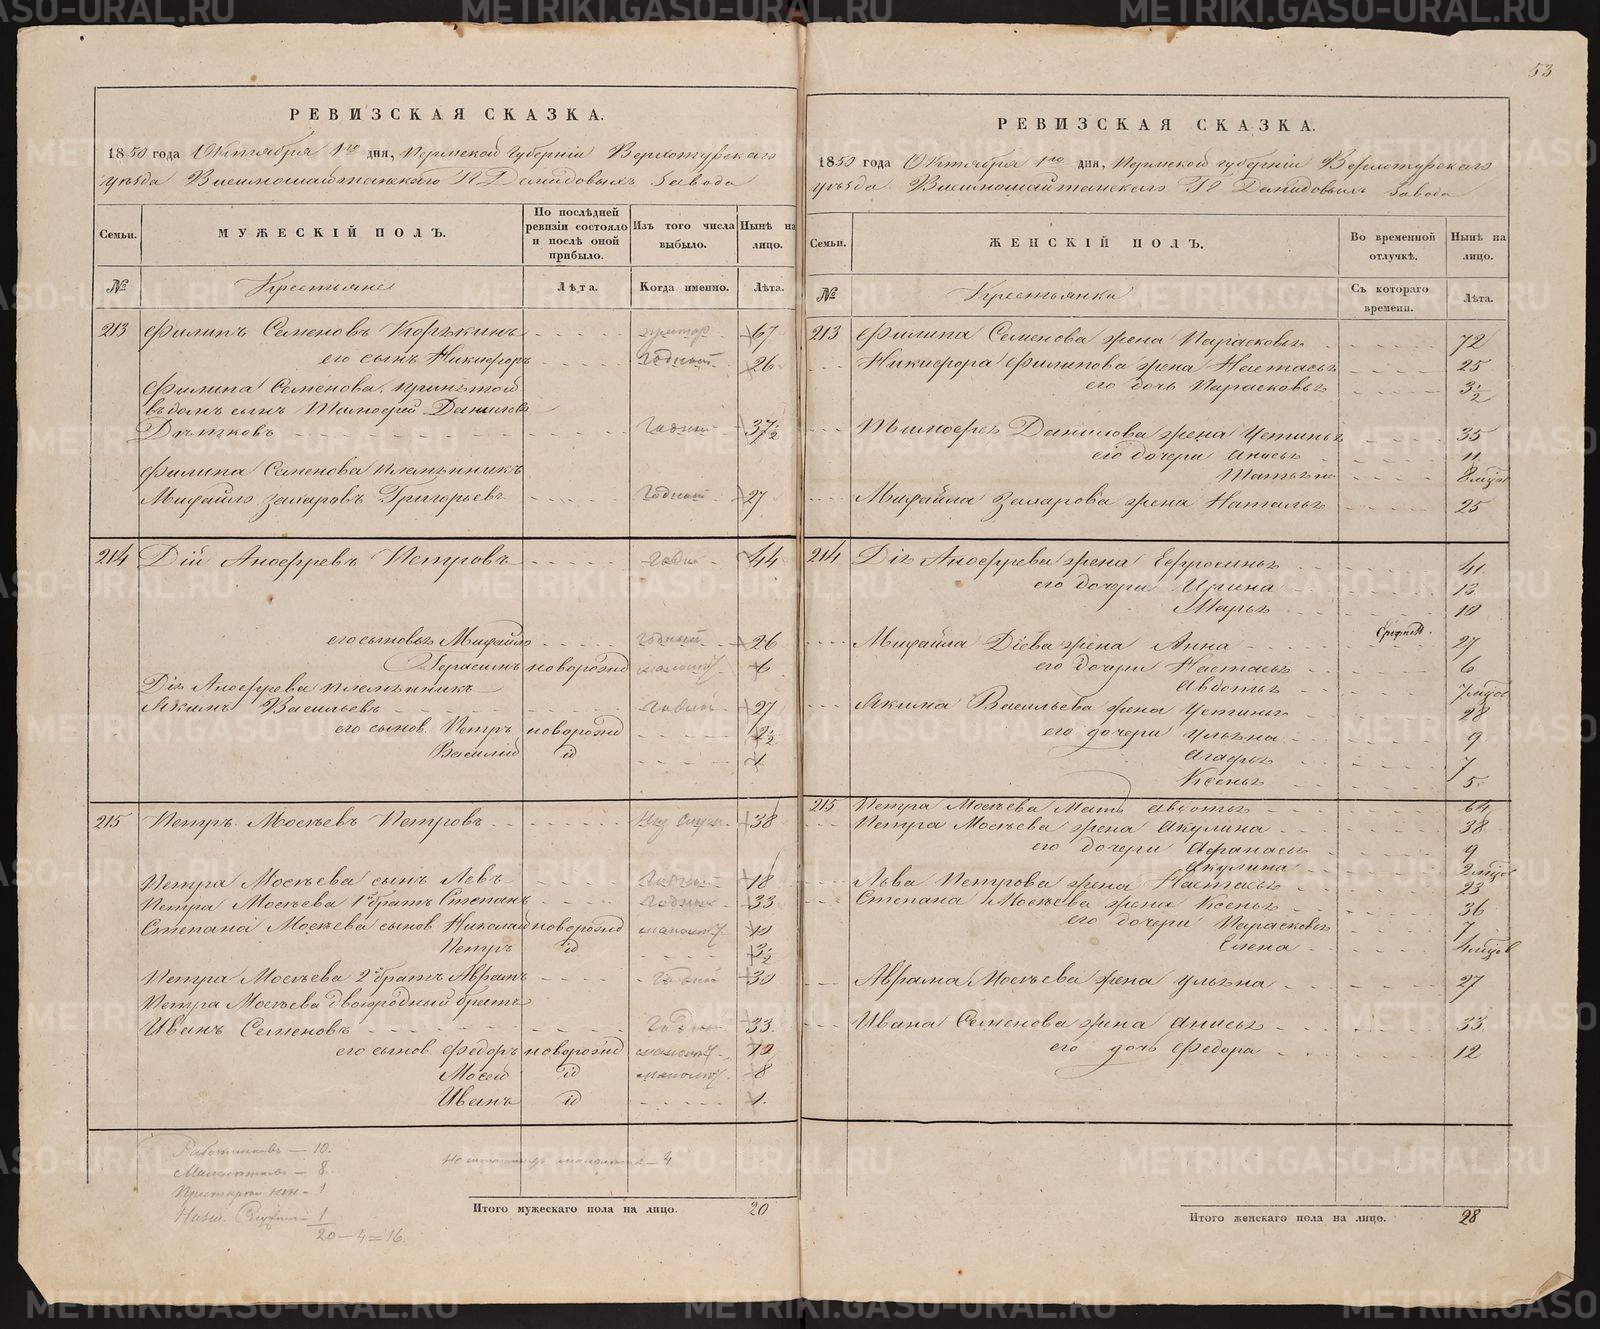 53
РЕВИЗСКАЯ СКАЗКА.
1850 года Октября 1го дня, Пермской Губерніи Верхотурскаго
уѣзда Висимошайтанскаго Гг Демидовыхъ Завода
Семьи.
МУЖЕСКІЙ ПОЛЪ.
По послѣдней ревизіи состояло и послѣ оной прибыло.
Изъ того числа выбыло.
Нынѣ на лицо.
№
Крестьяне
Лѣта.
Когда именно.
Лѣта.
213 Филипъ Семеновъ Корякинъ престар. 67
его сынъ Никифоръ годный 26
Филипа Семенова, принятой
въ домъ сынъ Тимофей Даниловъ
годный 37 1/2
Филипа Семенова племянникъ
Михайло Захаровъ Григорьевъ годный 27
214 Дій Анофріевъ Петровъ годн. 44
его сыновья Михайло годный 26
Герасимъ новорожд малолѣт 6
Дія Анофріева племянникъ
Якимъ Васильевъ годный 27
его сынов. Петръ новорожд 2 1/2
Василій id 1
215 Петръ Мосѣевъ Петровъ 38
Петра Мосѣева сынъ Левъ годный 18
Петра Мосѣева 1й братъ Степанъ годный 33
Степана Мосѣева сынов Николай новорожд малолѣт 10
Петръ id 3 1/2
Петра Мосѣева 2й братъ Аврамъ годный 30
Петра Мосѣева двоюродный братъ
Иванъ Семеновъ годный 33.
его сынов. Федоръ новорожд малолѣт 12
Мосей id малолѣт. 8
Иванъ id 1.
Работниковъ — 10.
Малолѣтковъ — 8.
Престарѣл. — 1
20 — 4 = 16.
Итого мужескаго пола на лицо. 20
РЕВИЗСКАЯ СКАЗКА.
1850 года Октября 1го дня, Пермской губерніи Верхотурскаго
уѣзда Висимошайтанскаго Гг Демидовыхъ Завода
Семьи.
ЖЕНСКІЙ ПОЛЪ.
Во временной отлучкѣ.
Нынѣ на лицо.
№
Крестьянки
Съ котораго времени.
Лѣта.
213 Филипа Семенова жена Парасковья 72
Никифора Филипова жена Настасья 25
его дочь Парасковья 3 1/2
Тимофея Данилова жена Устинья 35
его дочери Анисья 11
Татьяна 8 мцов
Михайла Захарова жена Наталья 25
214 Дія Анофріева жена Ефросинья 41
его дочери Ирина 13
Марья 10
Михайла Діева жена Анна 27
его дочери Настасья 6
Авдотья 7 мцов
Якима Васильева жена Устинья 28
его дочери Ульяна 9
Агафья 7
Ксенья 5.
215 Петра Мосѣева Мать Авдотья 64
Петра Мосѣева жена Акулина 38
его дочери Афанасья 9
Акулина 2 мцов
Льва Петрова жена Настасья 23
Степана Мосѣева жена Ксенья 36
его дочери Парасковья 7
Елена 4 мцов
Аврама Мосѣева жена Ульяна 27
Ивана Семенова жена Анисья 33.
его дочь Федора 12
Итого женскаго пола на лицо. 28
METRIKI.GASO-URAL.RU